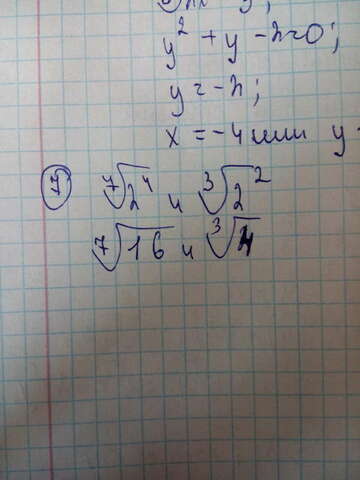 y² + y - n = 0;
y = -n;
x = -4 или y
⑦ ⁷√2⁴ и ³√2²
⁷√16 и ³√4